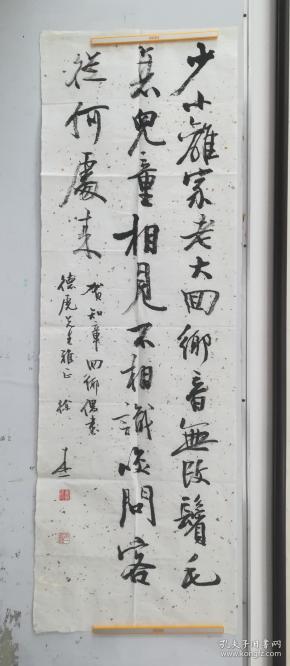 少小離家老大回鄉音無改鬢毛
衰兒童相見不相識咲問客
從何處来
賀知章回鄉偶書
德虎先生雅正 徐
孔夫子旧书网